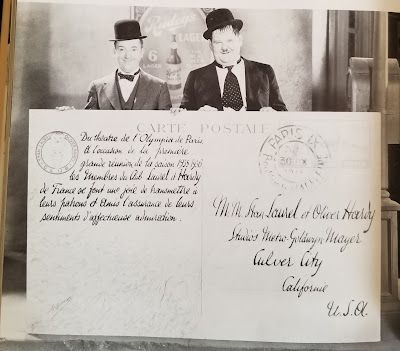 Ruedy's
LAGER
6
LAGER
CARTE POSTALE
Du théâtre de l'Olympia de Paris
à l'occasion de la première
grande réunion de la saison 1935-1936,
les Membres du Club Laurel et Hardy
de France se font une joie de transmettre à
leurs patrons et amis l'assurance de leurs
sentiments d'affectueuse admiration.
PARIS IX
30
MM. Stan Laurel et Oliver Hardy
Studios Metro-Goldwyn Mayer
Culver City
Californie
U.S.A.